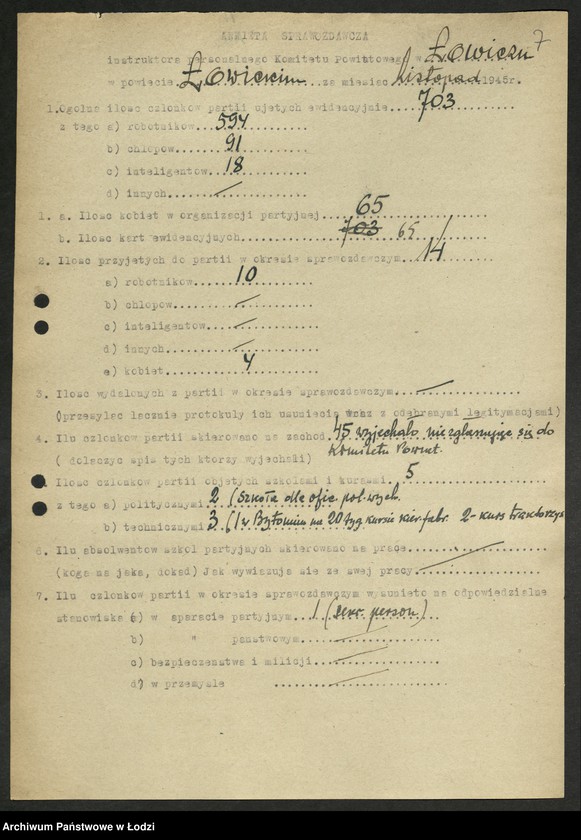 ANKIETA SPRAWOZDAWCZA
7
instruktora personalnego Komitetu Powiatowego w Łowiczu
w powiecie Łowickim za miesiąc listopad 1945r.
1. Ogólna ilość członków partii ujętych ewidencyjnie 703
z tego a) robotników 594
b) chłopów 91
c) inteligentów 18
d) innych /
1. a. Ilość kobiet w organizacji partyjnej 65
b. Ilość kart ewidencyjnych 703 65
2. Ilosc przyjętych do partii w okresie sprawozdawczym 14
a) robotników 10
b) chłopów /
c) inteligentow /
d) innych /
e) kobiet 4
3. Ilosc wydalonych z partii w okresie sprawozdawczym /
(przesylac lacznie protokuly ich usuniecia wraz z odebranymi legitymacjami)
4. Ilu czlonkow partii skierowano na zachod 45 wyjechało nie zgłaszając się do
( dolaczyc spis tych ktorzy wyjechali) Komitetu Powiat.
Ilosc czlonkow partii objetych szkolami i kursami 5
z tego a) politycznymi 2 (Szkoła dla ofic. pol.-wych.
b) technicznymi 3 (1 w Bytomiu na 20 tyg kursie kier. fabr. 2 - kurs traktorzys
6. Ilu absolwentow szkol partyjnych skierowano na prace /
(kogo na jaka, dokad) Jak wywiazuja sie ze swej pracy /
7. Ilu czlonkow partii w okresie sprawozdawczym wysunieto na odpowiedzialne
stanowiska a) w aparacie partyjnym 1 (sekr. person)
b) " państwowym /
c) bezpieczenstwa i milicji /
d) w przemysle /
Archiwum Państwowe w Łodzi